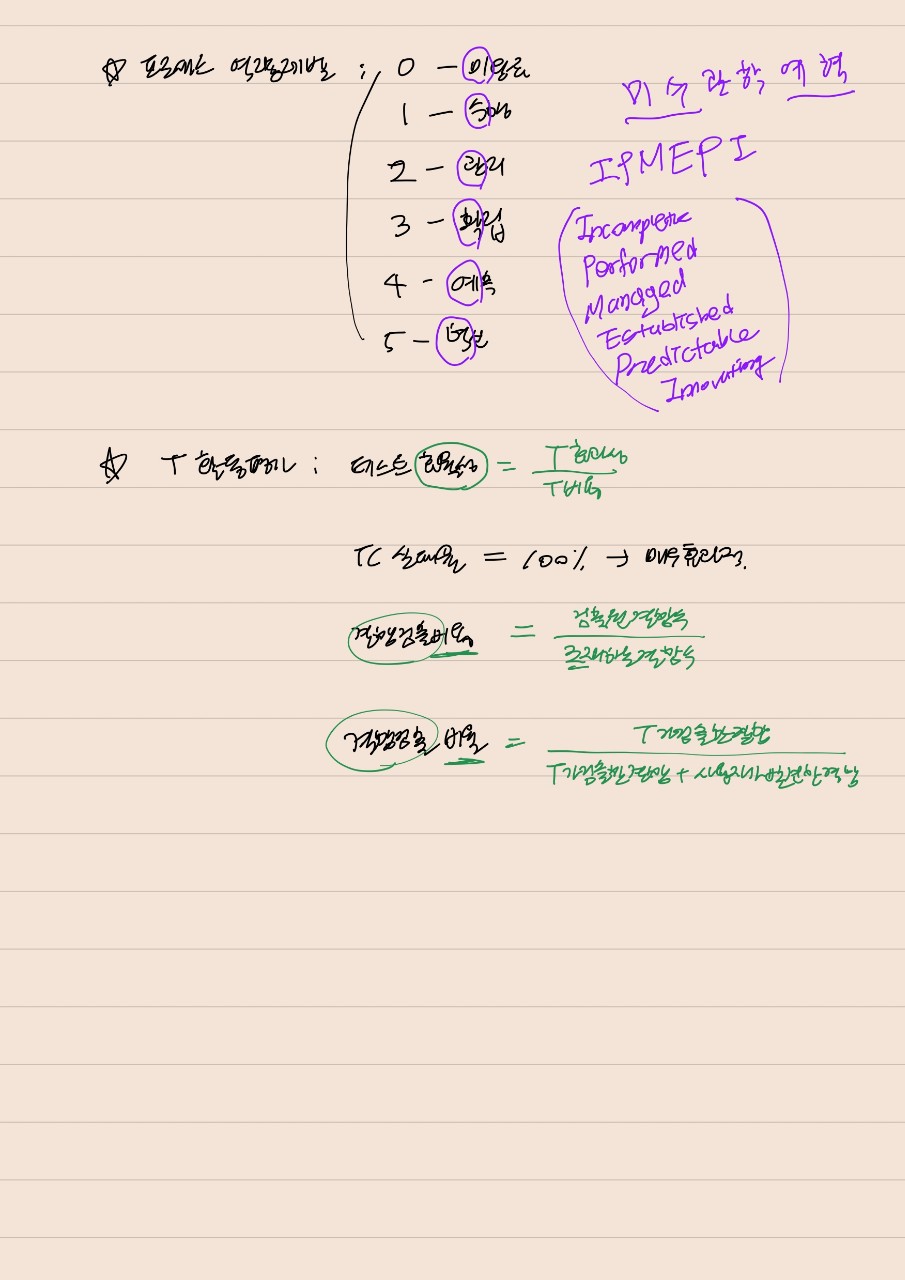 ☆ 프로세스 역량레벨 ; 0 - 미완료
1 - 수행
2 - 관리
3 - 확립
4 - 예측
5 - 혁신
미 수 관 확 예 혁
IPMEPI
Incomplete
Performed
Managed
Established
Predictable
Innovating
☆ T 활동평가 ; 테스트 효율성 = T 효과성 / T 비용
TC 실패율 = 100% → 매우효과적.
결함검출비율 = 검출된 결함수 / 존재하는 결함수
결함검출 비율 = T가검출한결함 / T가검출한결함 + 사용자가 발견한